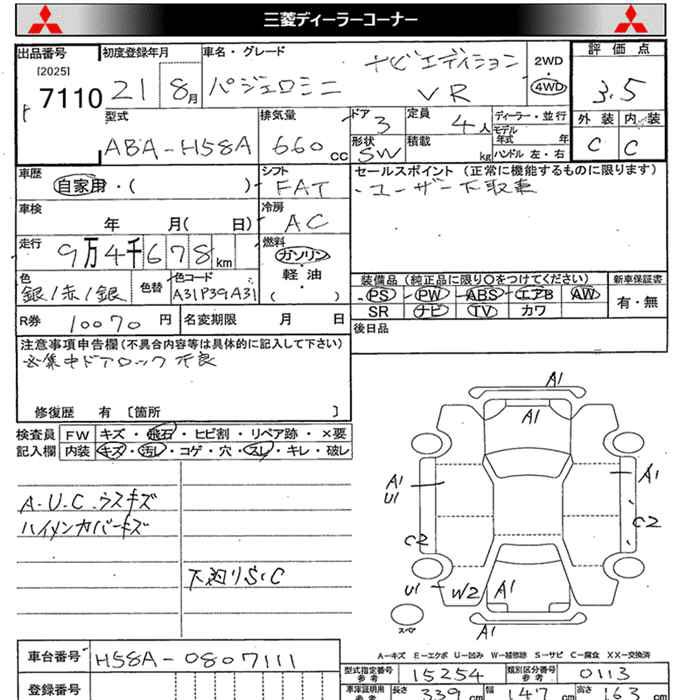 三菱ディーラーコーナー
出品番号 初度登録年月 車名・グレード 評価点
[2025] ナビエディション 2WD
7110 21 8月 パジェロミニ VR 4WD 3.5
型式 排気量 ドア 定員 ディーラー・並行 外装 内装
ABA-H58A 660cc 3 4人 モデル年式 年 C C
形状 積載 kg ハンドル 左・右
SW
車歴 シフト セールスポイント (正常に機能するものに限ります)
自家用・( ) FAT ・ユーザー下取車
車検 冷房
年 月( 日) AC
走行 燃料
9万4千678km ガソリン
軽・油
( )
色 色替 色コード
銀/赤/銀 A31P39A31
装備品 (純正品に限り○をつけてください) 新車保証書
PS PW ABS エアB AW 有・無
SR ナビ TV カワ
R券 10070円 名変期限 月 日 後日品
注意事項申告欄(不具合内容等は具体的に記入して下さい)
集中ドアロック不良
修復歴 有 [箇所 ]
検査員 FW キズ・飛石・ヒビ割・リペア跡・×要
記入欄 内装 キズ・汚レ・コゲ・穴・スレ・キレ・破レ
A.U.C.ウスキズ
ハイメンカバーキズ
下廻りS.C
A1
A1
A1 A1
U1
C2 C2
U1 W2 A1
A1
スペア
A-キズ E-エクボ U-凹み W-補修跡 S-サビ C-腐食 XX-交換済
車台番号 H58A-0807111
型式指定番号 参考 15254 類別区分番号 参考 0113
登録番号
車庫証明用 参考 長さ 339cm 幅 147cm 高さ 163cm